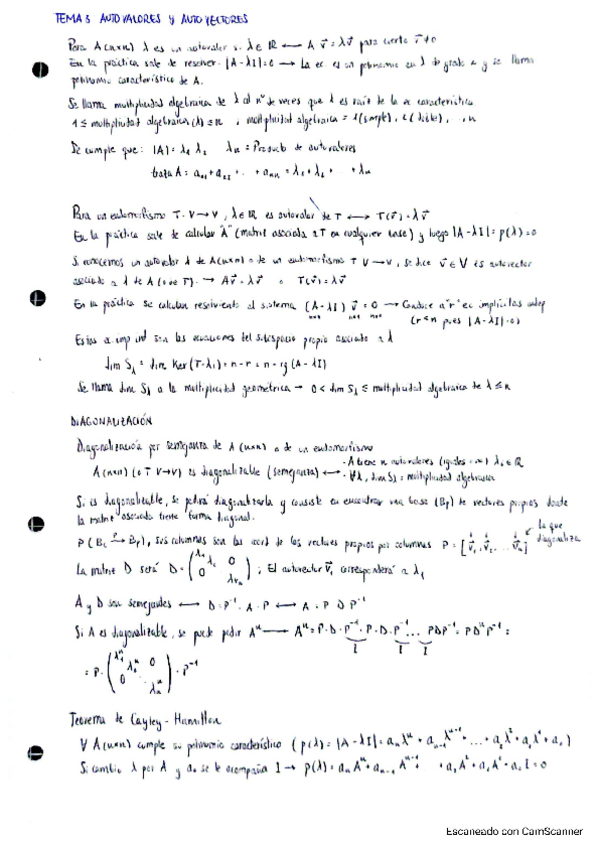 TEMA 3 AUTOVALORES Y AUTOVECTORES
Para A(nxn) λ es un autovalor si λ ∈ ℝ ⟷ A v⃗ = λv⃗ para cierto v⃗ ≠ 0
En la práctica sale de resolver |A-λI| = 0 → La ec. es un polinomio en λ de grado n y se llama
polinomio característico de A.
Se llama multiplicidad algebraica de λ al nº de veces que λ es raíz de la ec característica
1 ≤ multiplicidad algebraica(λ) ≤ n , multiplicidad algebraica = 1(simple), 2(doble), ..., n
Se cumple que: |A| = λ₁ λ₂ λn = Producto de autovalores
traza A = a₁₁ + a₂₂ + ... + ann = λ₁ + λ₂ + ... + λn
Para un endomorfismo T: V→V, λ ∈ ℝ es autovalor de T ⟷ T(v⃗) = λv⃗
En la práctica sale de calcular "A" (matriz asociada a T en cualquier base) y luego |A-λI| = p(λ) = 0
Si conocemos un autovalor λ de A(nxn) o de un endomorfismo T V→V, se dice v⃗ ∈ V es autovector
asociado a λ de A (o de T) → Av⃗ = λv⃗ o T(v⃗) = λv⃗
En la práctica se calculan resolviendo el sistema (A-λI) v⃗ = 0 → Conduce a "r" ec implícitas indep
(r<n pues |A-λI| = 0)
Estas ec imp ind son las ecuaciones del subespacio propio asociado a λ
dim Sλ = dim Ker(T-λI) = n-r = n-rg(A-λI)
Se llama dim Sλ a la multiplicidad geométrica → 0 < dim Sλ ≤ multiplicidad algebraica de λ ≤ n
DIAGONALIZACIÓN
Diagonalización por semejanza de A(nxn) o de un endomorfismo
A(nxn) (o T V→V) es diagonalizable (semejanza) ⟷ - A tiene n autovalores (iguales o no) λi ∈ ℝ
- ∀λi dim Sλi = multiplicidad algebraica
Si es diagonalizable, se podrá diagonalizarla y consiste en encontrar una base (Bp) de vectores propios donde
la matriz asociada tiene forma diagonal.
P (Bc →P Bp), sus columnas son las coord de los vectores propios por columnas P = [v⃗₁, v⃗₂, ... v⃗n] ← la que diagonaliza
La matriz D será D = (λ₁ λ₂ 0 0 λn) ; El autovector v⃗₁ corresponderá a λ₁
A y D son semejantes ⟷ D = P⁻¹ · A · P ⟷ A = P D P⁻¹
Si A es diagonalizable, se puede pedir Aⁿ → Aⁿ = P·D·P⁻¹·P·D·P⁻¹... PDP⁻¹ = PDⁿP⁻¹ =
I I I
= P · (λ₁ⁿ λ₂ⁿ 0 0 λnⁿ) · P⁻¹
Teorema de Cayley-Hamilton
∀ A(nxn) cumple su polinomio característico (p(λ) = |A-λI| = anλⁿ + an-1λⁿ⁻¹ + ... + a₂λ² + a₁λ + a₀)
Si cambio λ por A y a₀ se le acompaña I → p(λ) = anAⁿ + an-1Aⁿ⁻¹ + a₂A² + a₁A + a₀I = 0
Escaneado con CamScanner